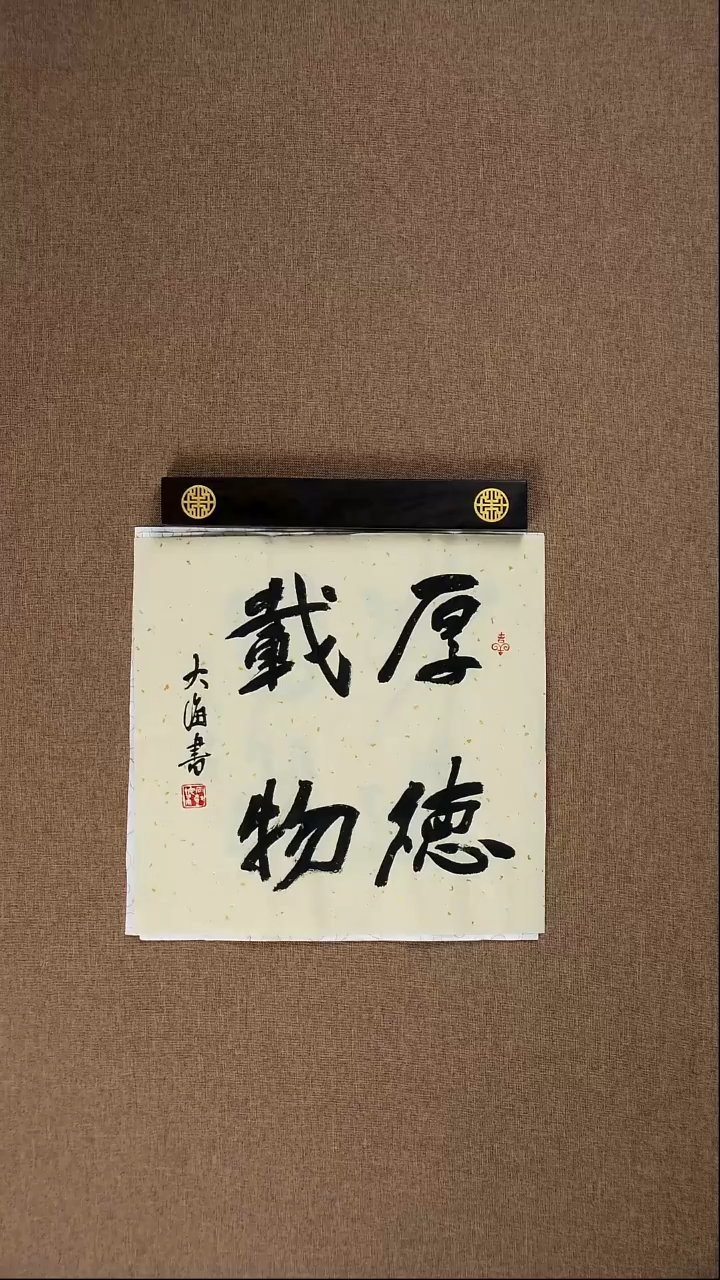 厚德
載物
大海書